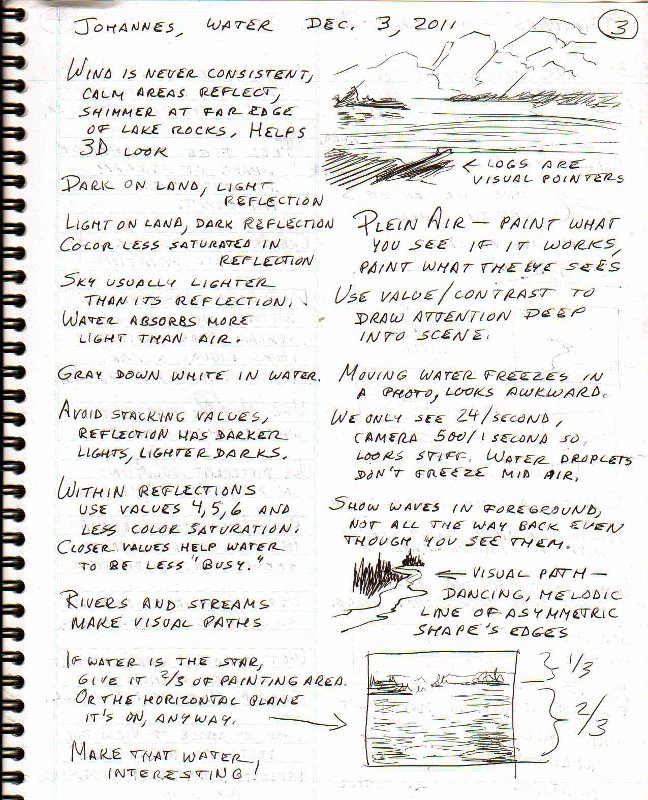 JOHANNES, WATER DEC. 3, 2011
3
WIND IS NEVER CONSISTENT,
CALM AREAS REFLECT,
SHIMMER AT FAR EDGE
OF LAKE ROCKS. HELPS
3D LOOK
DARK ON LAND, LIGHT
REFLECTION
LIGHT ON LAND, DARK REFLECTION
COLOR LESS SATURATED IN
REFLECTION
SKY USUALLY LIGHTER
THAN ITS REFLECTION.
WATER ABSORBS MORE
LIGHT THAN AIR.
GRAY DOWN WHITE IN WATER.
AVOID STACKING VALUES,
REFLECTION HAS DARKER
LIGHTS, LIGHTER DARKS.
WITHIN REFLECTIONS
USE VALUES 4, 5, 6 AND
LESS COLOR SATURATION.
CLOSER VALUES HELP WATER
TO BE LESS "BUSY."
RIVERS AND STREAMS
MAKE VISUAL PATHS
IF WATER IS THE STAR,
GIVE IT 2/3 OF PAINTING AREA.
OR THE HORIZONTAL PLANE
IT'S ON, ANYWAY.
MAKE THAT WATER,
INTERESTING!
← LOGS ARE
VISUAL POINTERS
PLEIN AIR — PAINT WHAT
YOU SEE IF IT WORKS,
PAINT WHAT THE EYE SEES
USE VALUE/CONTRAST TO
DRAW ATTENTION DEEP
INTO SCENE.
MOVING WATER FREEZES IN
A PHOTO, LOOKS AWKWARD.
WE ONLY SEE 24/SECOND,
CAMERA 500/1 SECOND SO
LOOKS STIFF. WATER DROPLETS
DON'T FREEZE MID AIR.
SHOW WAVES IN FOREGROUND,
NOT ALL THE WAY BACK EVEN
THOUGH YOU SEE THEM.
← VISUAL PATH —
DANCING, MELODIC
LINE OF ASYMMETRIC
SHAPE'S EDGES
1/3
2/3